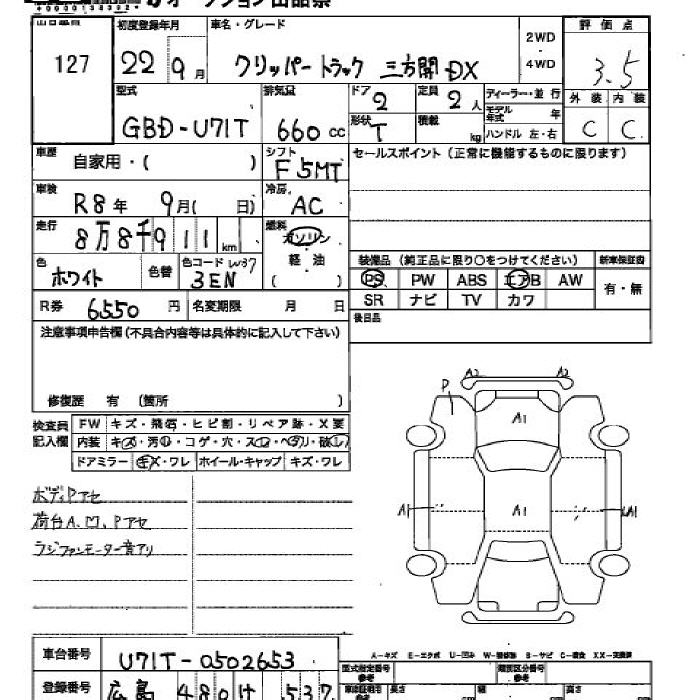 オークション出品票
初度登録年月 車名・グレード
127 22 9月 クリッパートラック 三方開 DX
2WD
4WD
評価点
3.5
外装 内装
C C
型式 排気量 ドア 定員 ディーラー・並行
GBD-U71T 660cc 2 2人
モデル年式 年
形状 積載
T kg ハンドル 左・右
車歴 シフト セールスポイント(正常に機能するものに限ります)
自家用・( ) F5MT
車検 冷房
R8年 9月( 日) AC
走行 燃料
8万8千911km ガソリン
軽油
( )
色 色替 色コード
ホワイト W37
3EN
装備品(純正品に限り○をつけてください) 新車保証書
PS PW ABS エアB AW 有・無
SR ナビ TV カワ
R券 6550円 名変期限 月 日
後日品
注意事項申告欄(不具合内容等は具体的に記入して下さい)
修復歴 有(箇所 )
検査員記入欄
FW キズ・飛石・ヒビ割・リペア跡・X要
内装 キズ・汚れ・コゲ・穴・スレ・ヘタリ・破レ
ドアミラー キズ・ワレ ホイール・キャップ キズ・ワレ
ボディPアセ
荷台A、凹、Pアセ
ラジファンモーター音アリ
A2 A2
P
A1
A1 A1 A1
A-キズ E-エクボ U-凹み W-補修跡 S-サビ C-腐食 XX-交換済
車台番号 U71T-0502653
型式指定番号 類別区分番号
登録番号 広島 480 け 537
長さ 幅 高さ